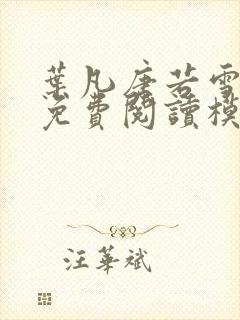 葉凡唐若雪
免費閱讀模
汪華斌